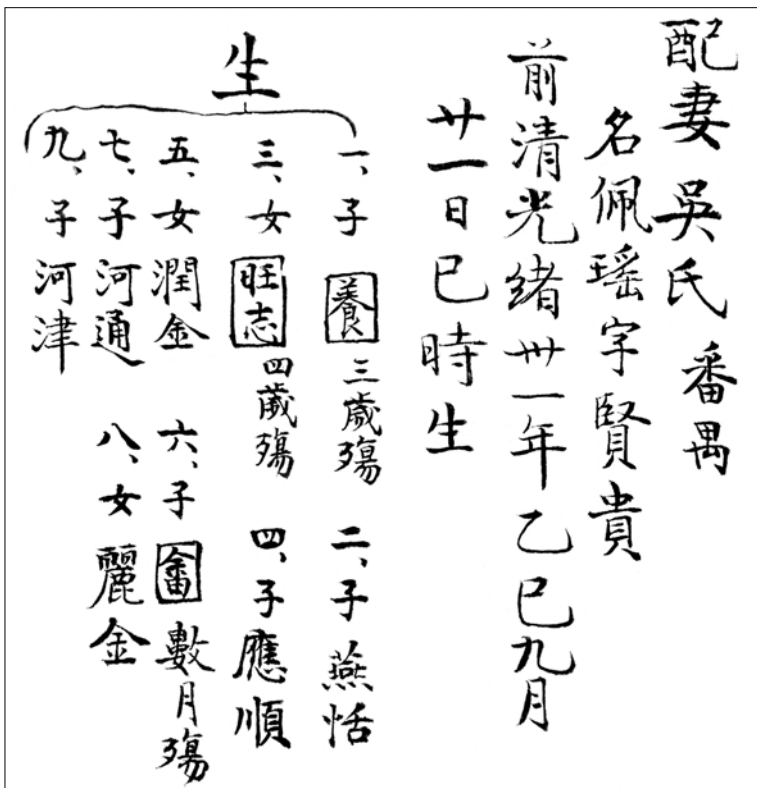 配妻吳氏 番禺
名佩瑤字賢貴
前清光緒卅一年乙巳九月
廿一日巳時生
生
一、子 養 三歲殤 二、子 燕恬
三、女 旺志 四歲殤 四、子 應順
五、女 潤金 六、子 畨 數月殤
七、子 河通 八、女 麗金
九、子 河津